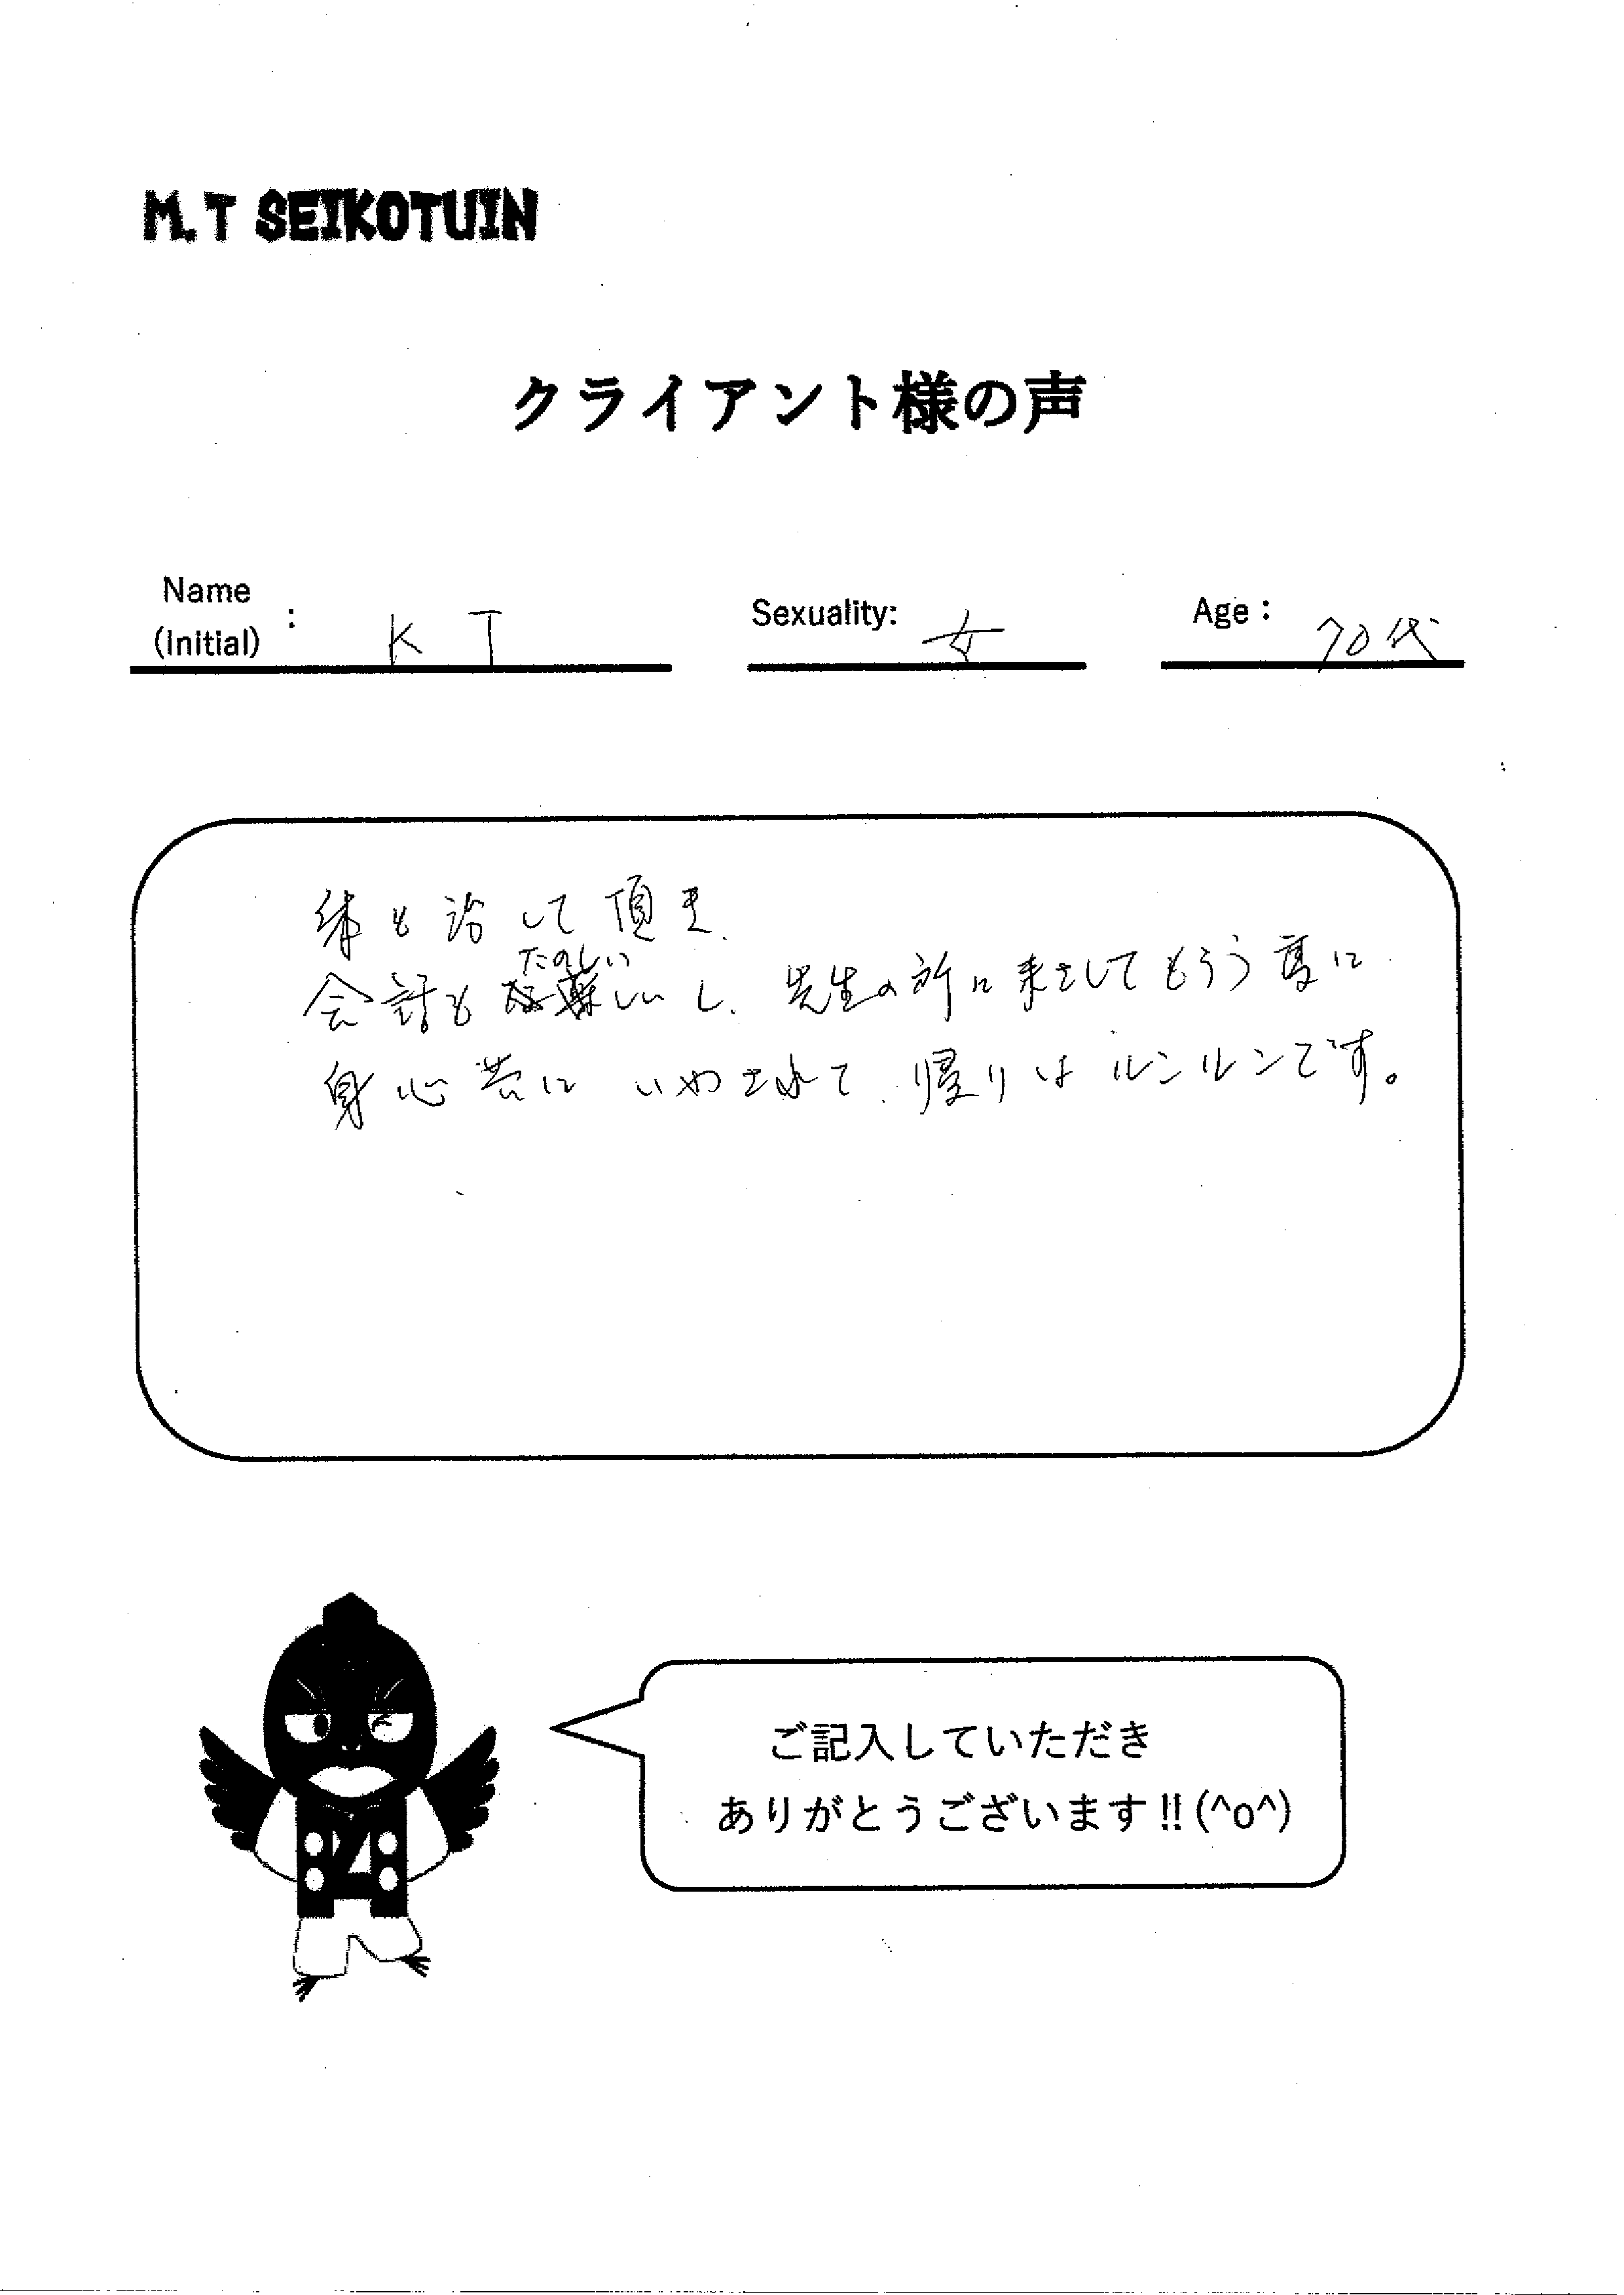 M.T SEIKOTUIN
クライアント様の声
Name
(Initial) : K T
Sexuality: 女
Age : 70代
体も治して頂き、
たのしい
会話もしいし、先生の所に来さしてもらう度に
身心共にいやされて、帰りはルンルンです。
ご記入していただき
ありがとうございます!!(^o^)